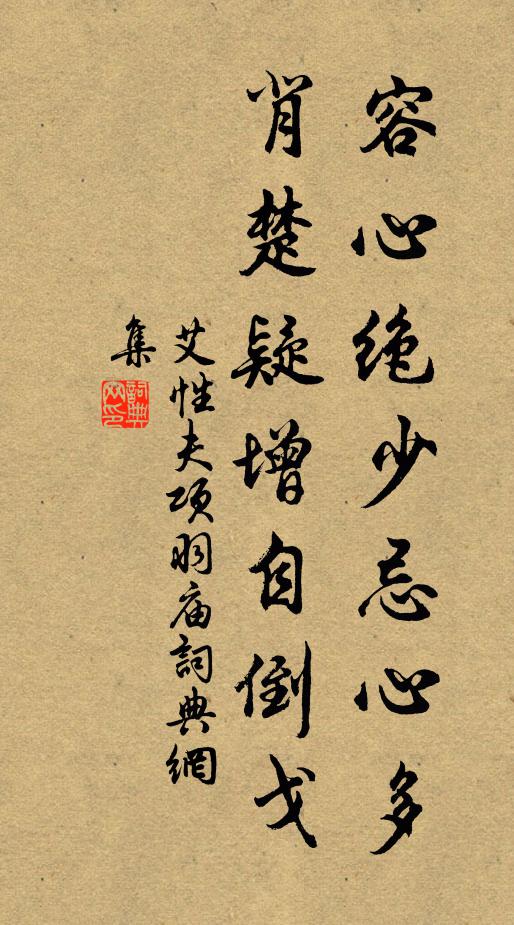 容心绝少忌心多
背楚疑增自倒戈
艾性夫项羽庙詞典網
集
詞典
网印